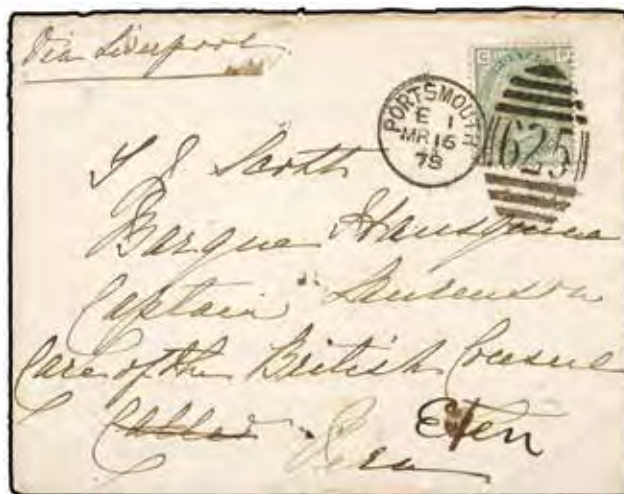 Via Liverpool
PORTSMOUTH
E 1
MR 16
78
625
Scott
Barque
Captain
Care of the British Consul
Callao Eten
Peru